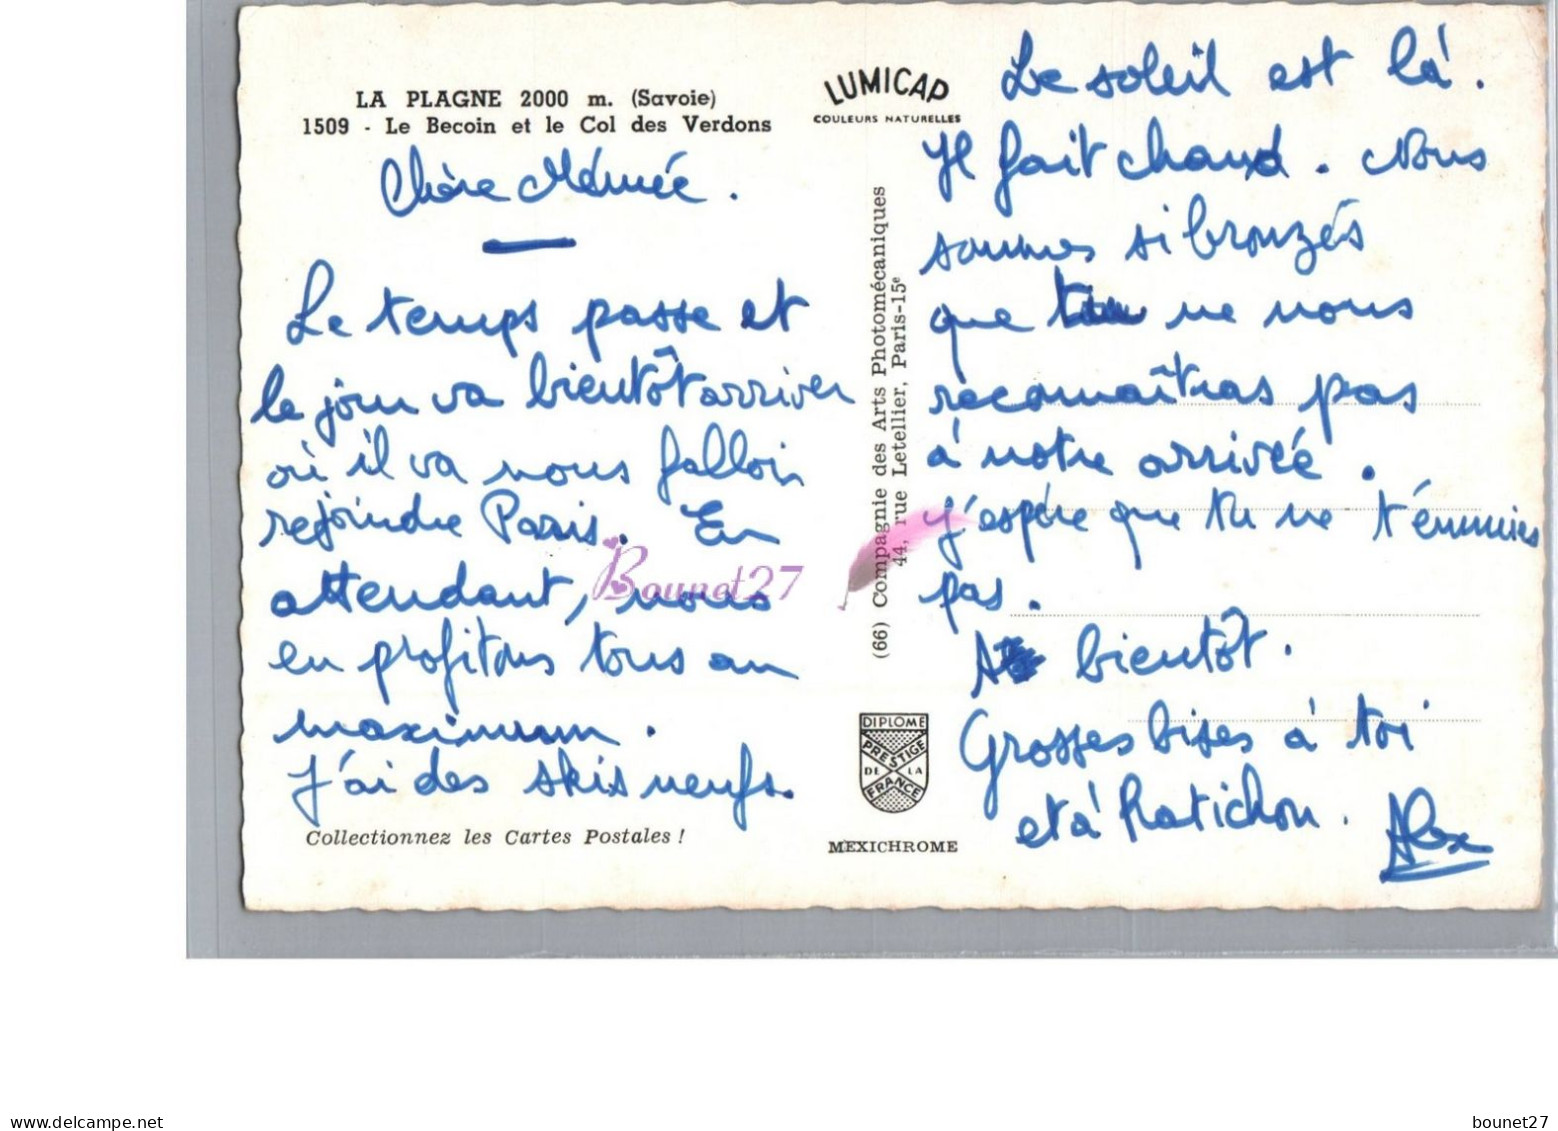 LA PLAGNE 2000 m. (Savoie)
1509 - Le Becoin et le Col des Verdons
Chère Mémée.
Le temps passe et
le jour va bientôt arriver
où il va nous falloir
rejoindre Paris. En
attendant, nous
en profitons tous au
maximum.
J'ai des skis neufs.
Collectionnez les Cartes Postales !
LUMICAP
COULEURS NATURELLES
(66) Compagnie des Arts Photomécaniques
44, rue Letellier, Paris-15e
DIPLOME
PRESTIGE
DE LA
FRANCE
MEXICHROME
Le soleil est là.
Il fait chaud. Nous
sommes si bronzés
que tu ne nous
reconnaîtras pas
à notre arrivée.
J'espère que tu ne t'ennuies
pas.
A bientôt.
Grosses bises à toi
et à Ratichon. Alex
Bounet27
delcampe.net
bounet27